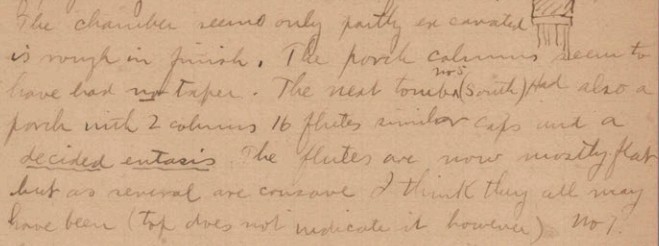 The chamber seems only partly excavated
is rough in finish. The porch columns seem to
have had no taper. The next tomb No 5 (South) Had also a
porch with 2 columns 16 flutes similar caps and a
decided entasis. The flutes are now mostly flat
but as several are concave I think they all may
have been (top does not indicate it however) No 7.